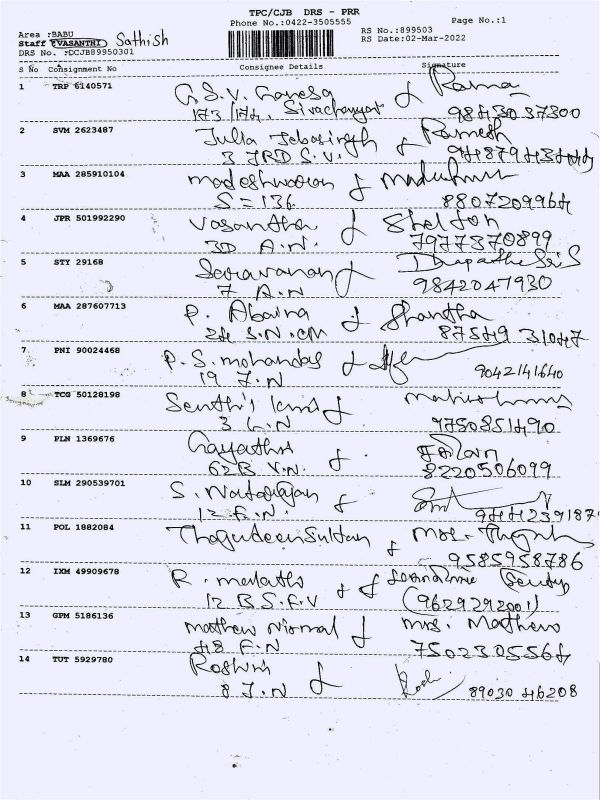 TPC/CJB DRS - PRR
Phone No.:0422-3505555 Page No.:1
Area :BABU RS No.:899503
Staff :VASANTHI Sathish RS Date:02-Mar-2022
DRS No. :DCJB89950301
S No Consignment No Consignee Details Signature
1 TRP 6140571 G.S.V. Ganesa Rama
173/174, Sivachanyar 9843037300
2 SVM 2623487 Julia Jebasingh Ramesh
3 JRD S.V.
3 MAA 285910104 madeshwaran
S = 136 8807209964
4 JPR 501992290 Vasantha Shelton
3D A.N. 7977370899
5 STY 29168 Saravanan
7 A.N 9842047930
6 MAA 287607713 P. Abaina Shantha
24 S.N. CM 87549 31047
7 PNI 90024468 P. S. mohandas
19 J.N 9042141640
8 TCG 50128198 Senthil
3 L.N 9750851490
9 PLN 1369676 Gayathri
62B V.N. 8220506099
10 SLM 290539701 S. Natarajan
12 F.N. 9442391187
11 POL 1882084 Thagudeen Sultan mrs.
9585958786
12 IXM 49909678 R. malathi
12 B.S.F.V (9629292001)
13 GPM 5186136 mathew nirmal mrs. Mathews
48 F.N 7502305564
14 TUT 5929780 Roshni Rosh
8 J.N 89030 46208